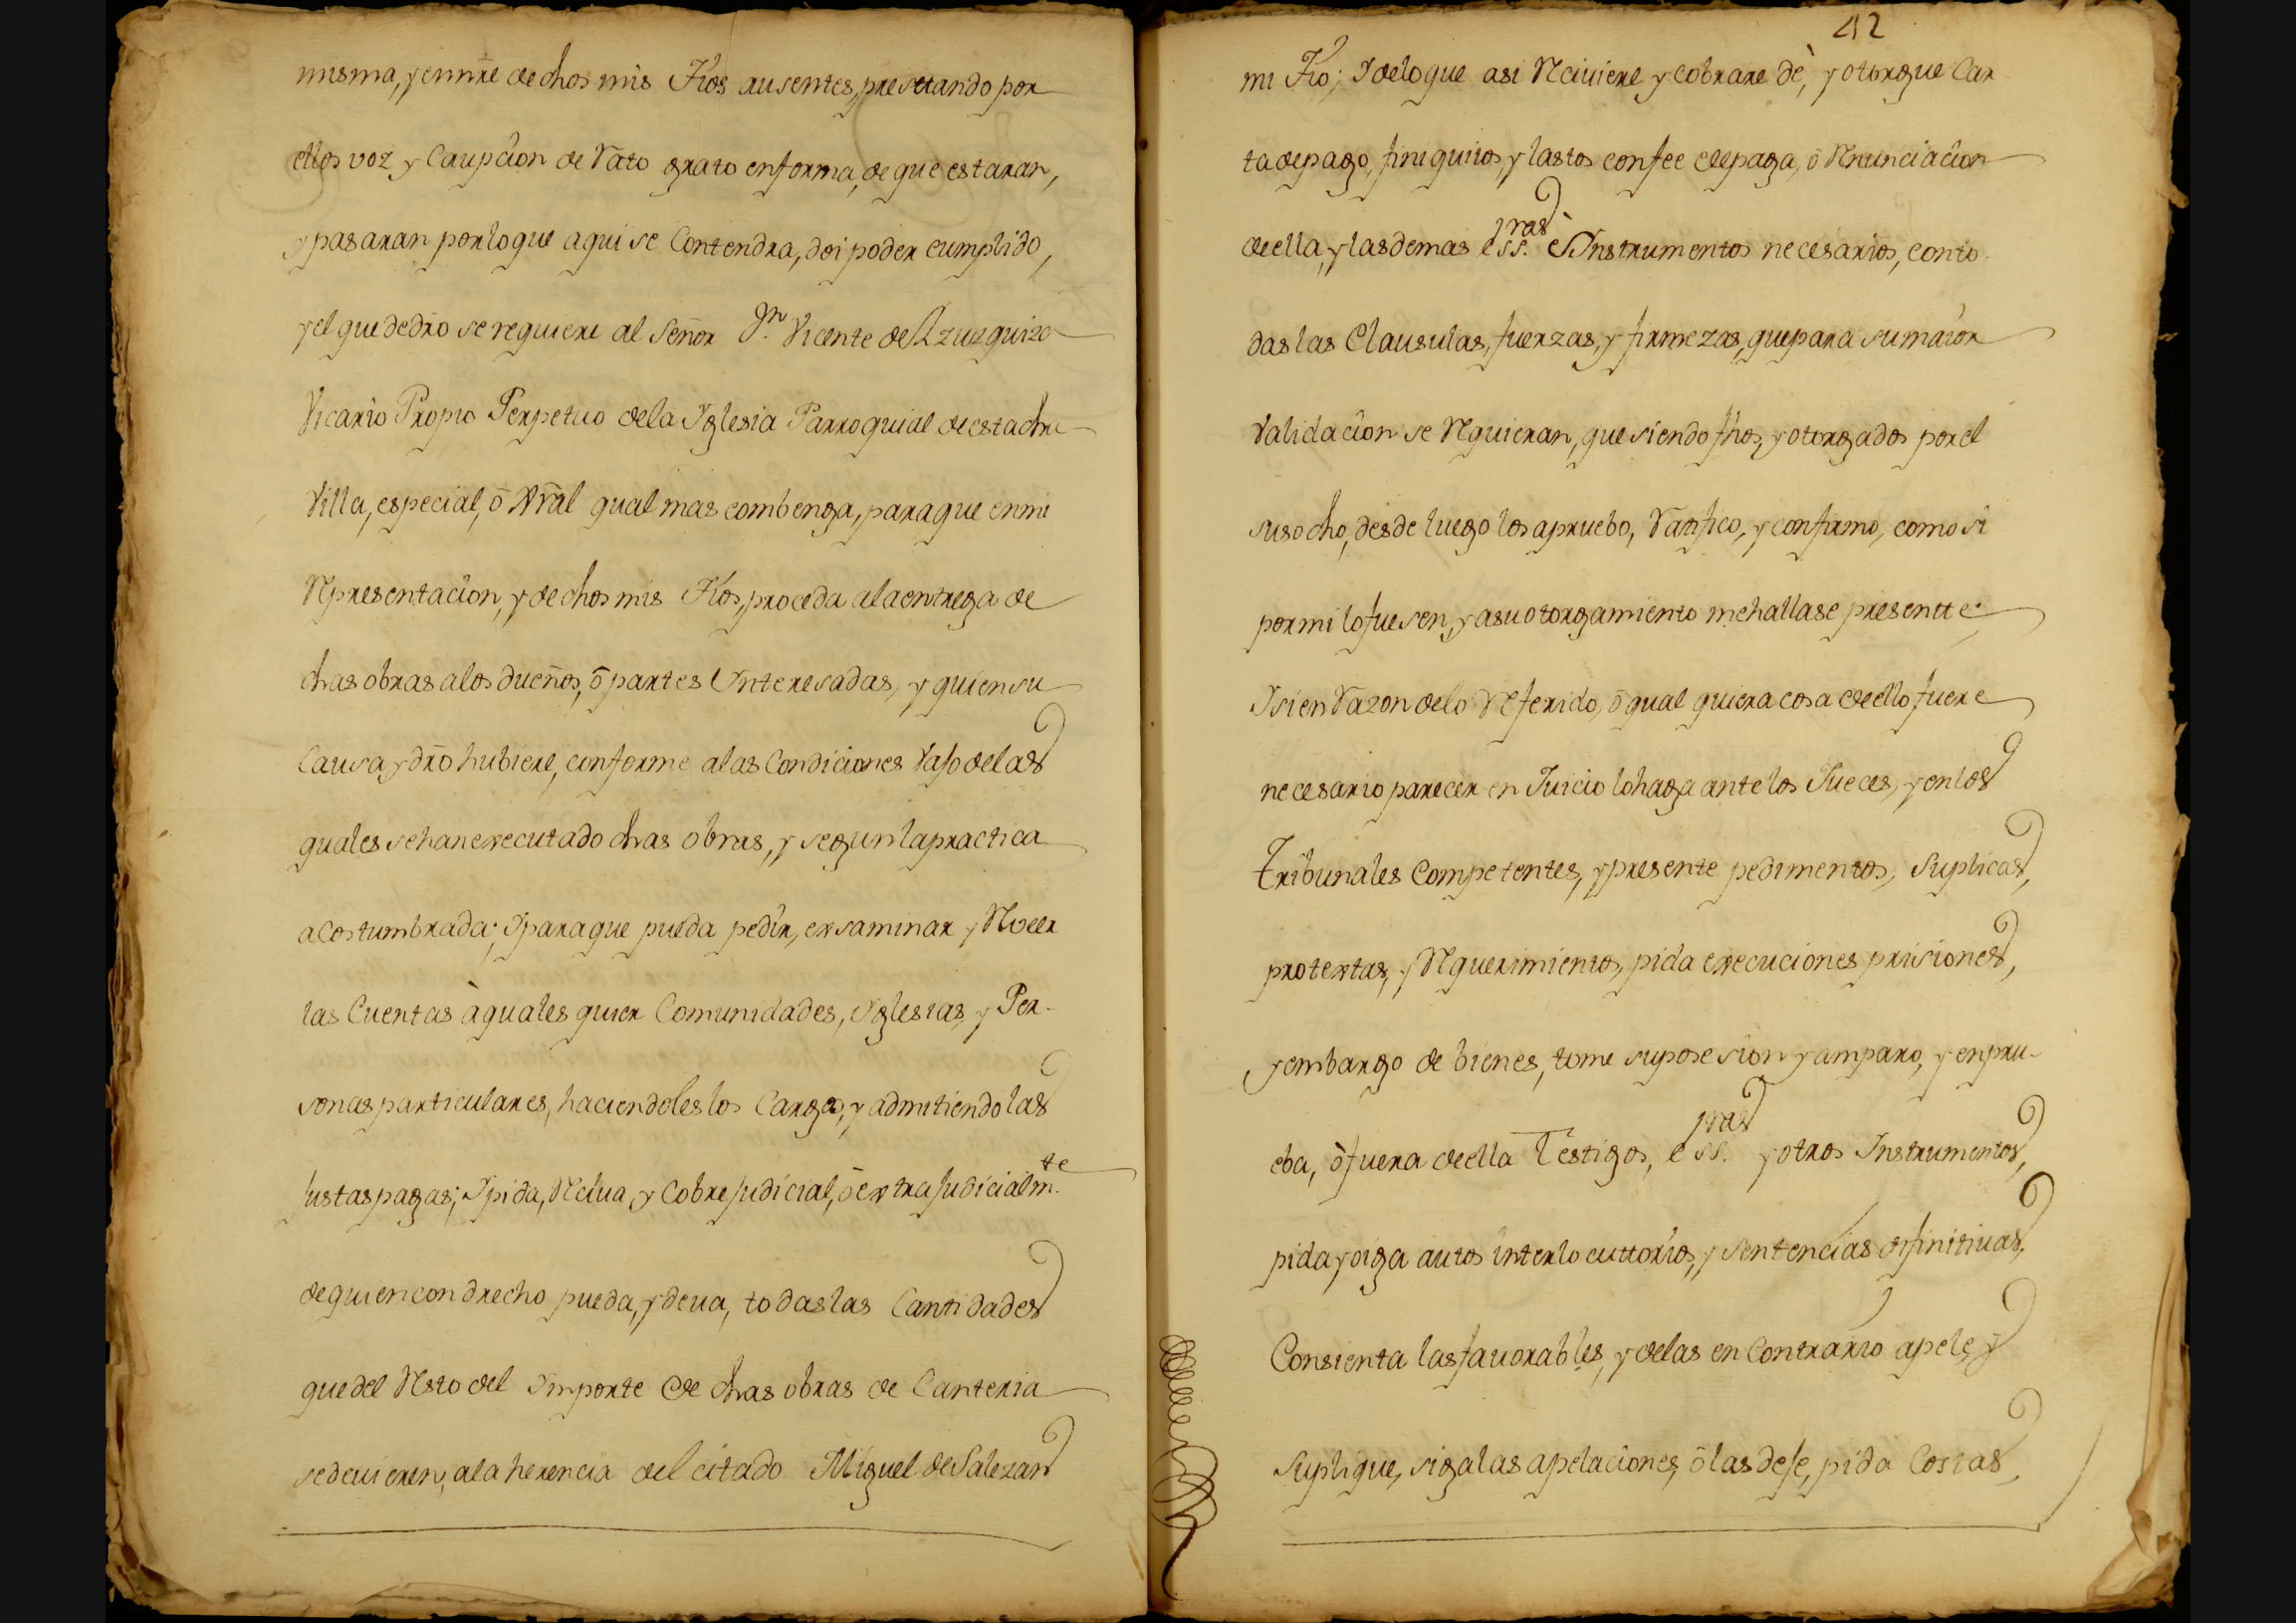 misma, y en nrẽ de dhos mis Tios ausentes, prestando por
ellos voz y Caupcion de Rato grato en forma, de que estaran,
y pasaran por lo que aqui se Contendra, doi poder cumplido,
y el que de dr̃o se requiere al Señor Dn. Vicente de Azuzquiza
Vicario Propio Perpetuo de la Yglesia Parroquial de esta dha
Villa, especial, ó Grãl qual mas combenga, para que en mi
Representacion, y de dhos mis Tios, proceda a la entrega de
dhas obras a los dueños, ó partes Ynteresadas, y quien su
Causa y dr̃o hubiere, conforme a las Condiciones vajo de las
quales se han executado dhas obras, y segun la practica
acostumbrada; Y para que pueda pedir, exsaminar y Rveer
las Cuentas à quales quier Comunidades, Yglesias, y Per-
sonas particulares, haciendoles los Cargos, y admitiendo las
Justas pagas; Y pida, Reciva, y Cobre Judicial, ó extra Judicialmte.
de quien con drecho pueda, y deva, todas las Cantidades
que del Resto del Ymporte de dhas obras de Canteria
se devieren, a la herencia del citado Miguel de Salezan
42
mi Tio; Y de lo que asi Reciviere y cobrare dè, y otorgue Car
ta de pago, finiquitos, y lastos con fee de paga, ó Renunciacion
de ella, y las demas ess.pras è Ynstrumentos necesarios, con to
das las Clausulas, fuerzas, y firmezas, que para su maior
Validacion se Requieran, que siendo fhos, y otorgados por el
suso dho, desde luego los apruebo, Ratifico, y confirmo, como si
por mi lo fuesen, y a su otorgamiento me hallase presentte:
Y si en Razon de lo Referido, ó qual quiera cosa de ello fuere
necesario parecer en Juicio lo haga ante los Jueces, y en los
Tribunales Competentes, y presente pedimentos, Suplicas,
protextas, y Requerimientos, pida execuciones prisiones,
y embargo de bienes, tome su posesion y amparo, y en pru-
eba, ò fuera de ella Testigos, ess.pras y otros Instrumentos,
pida y oiga autos interlocuttorios, y sentencias difinitivas,
Consienta las favorables, y de las en Contrario apele, y
Suplique, siga las apelaciones, ó las deje, pida Costas,